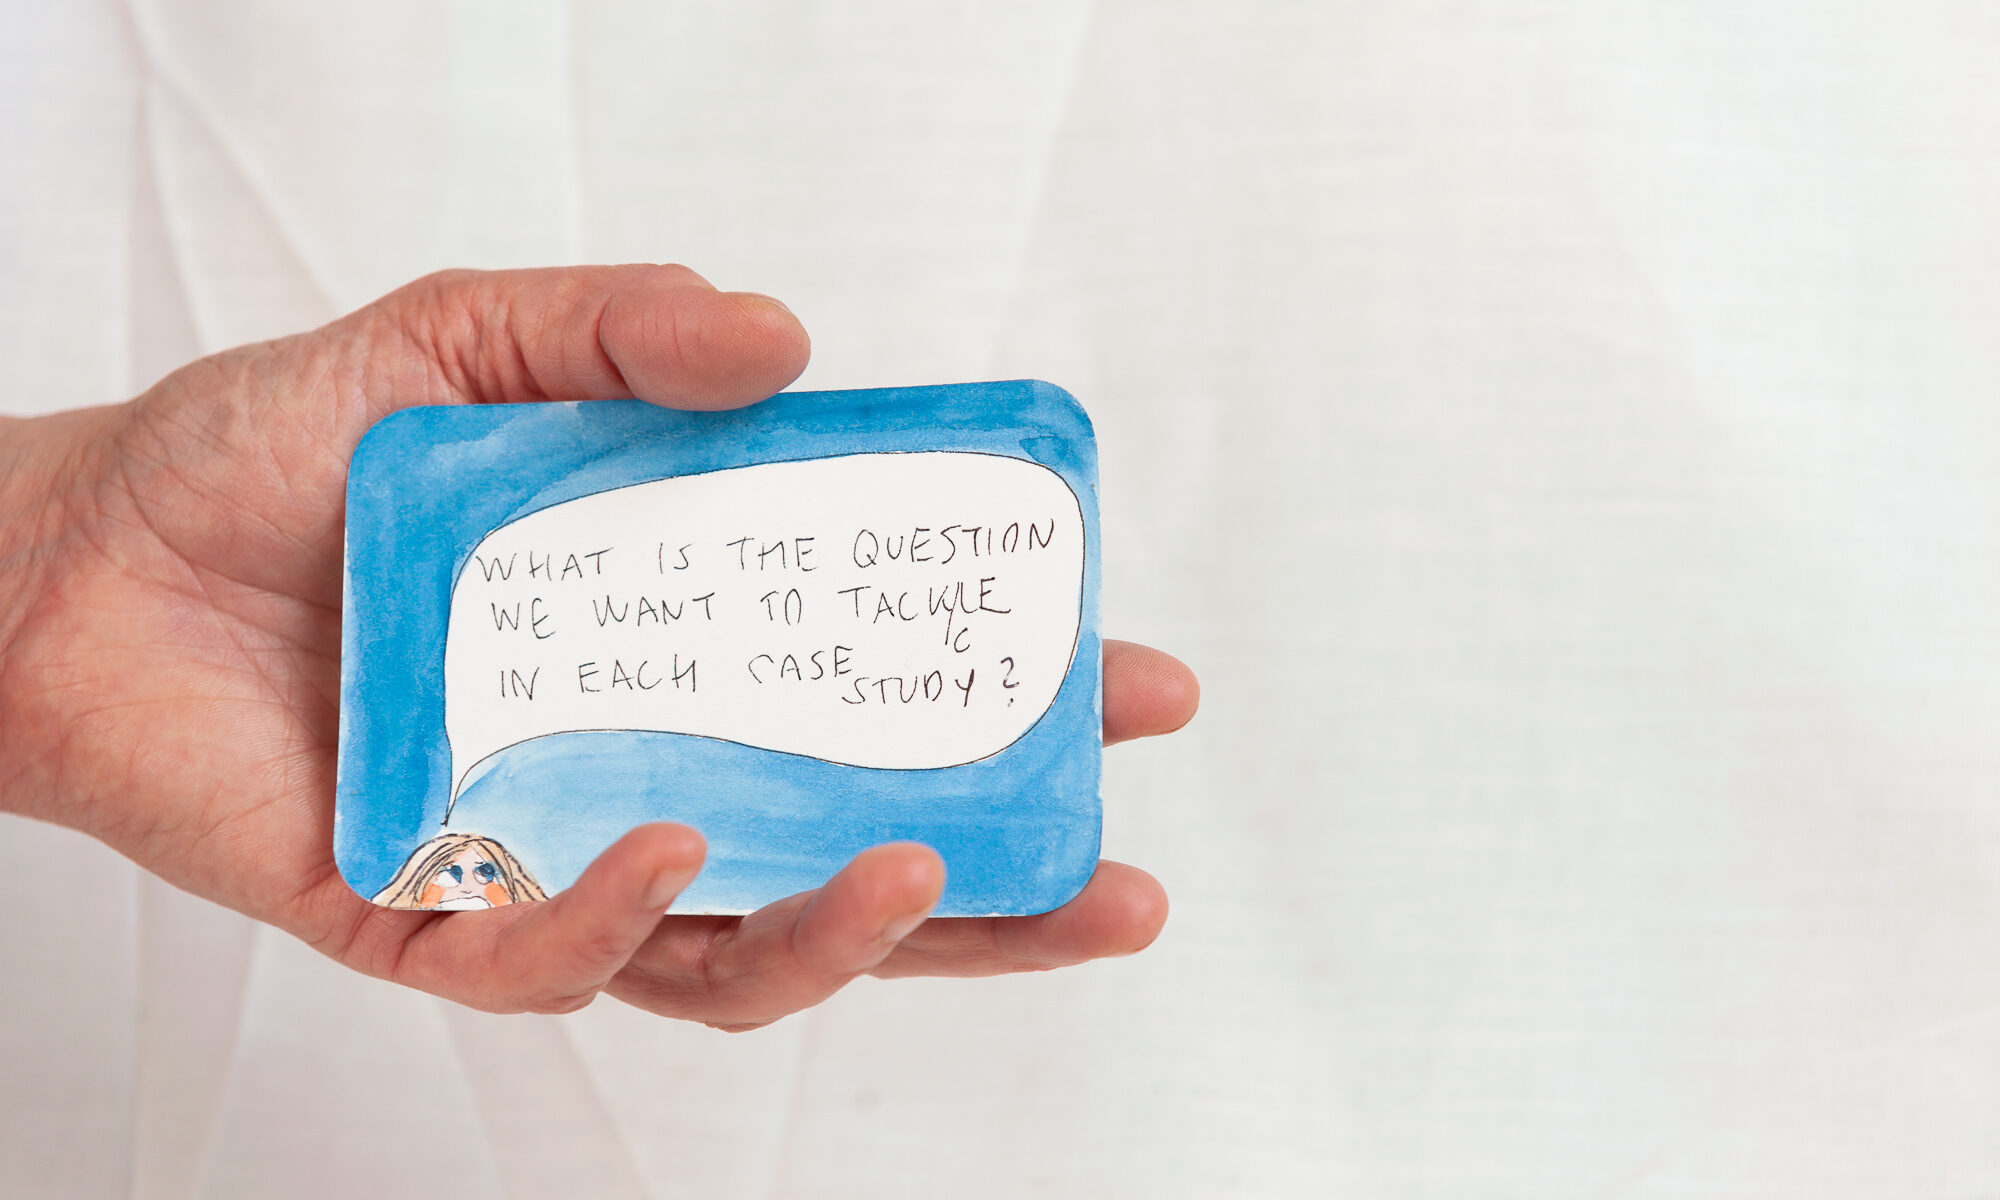 WHAT IS THE QUESTION
WE WANT TO TACKLE
IN EACH CASE
STUDY?